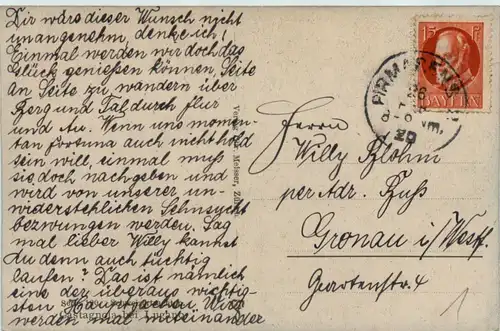 Dir wärs dieser Wunsch nicht
unangenehm, denke ich!
Einmal werden wir doch das
Glück genießen können Seite
an Seite zu wandern über
Berg und Tal durch flur
und Au. Wenn uns momen-
tan fortuna auch nicht hold
sein will, einmal muß
sie doch nachgeben und
wird von unserer un-
widerstehlichen Sehnsucht
bezwungen werden. Sag
mal lieber Willy kannst
Du denn auch tüchtig
laufen? Das ist nämlich
eine der überaus wichtig-
sten Hauptsachen. Wir
werden mal miteinander
Castagnola bei Lugano
Meisser, Zürich
15 Pf
BAYERN
PIRMASENS
Herrn
Willy Blohm
per Adr. Fuß
Gronau i/Westf.
Gartenstr. 4
1